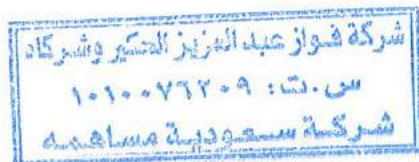 شركة فواز عبد العزيز الحكير وشركاه
س.ت: ١٠١٠٠٧٦٢٠٩
شركة سعودية مساهمة